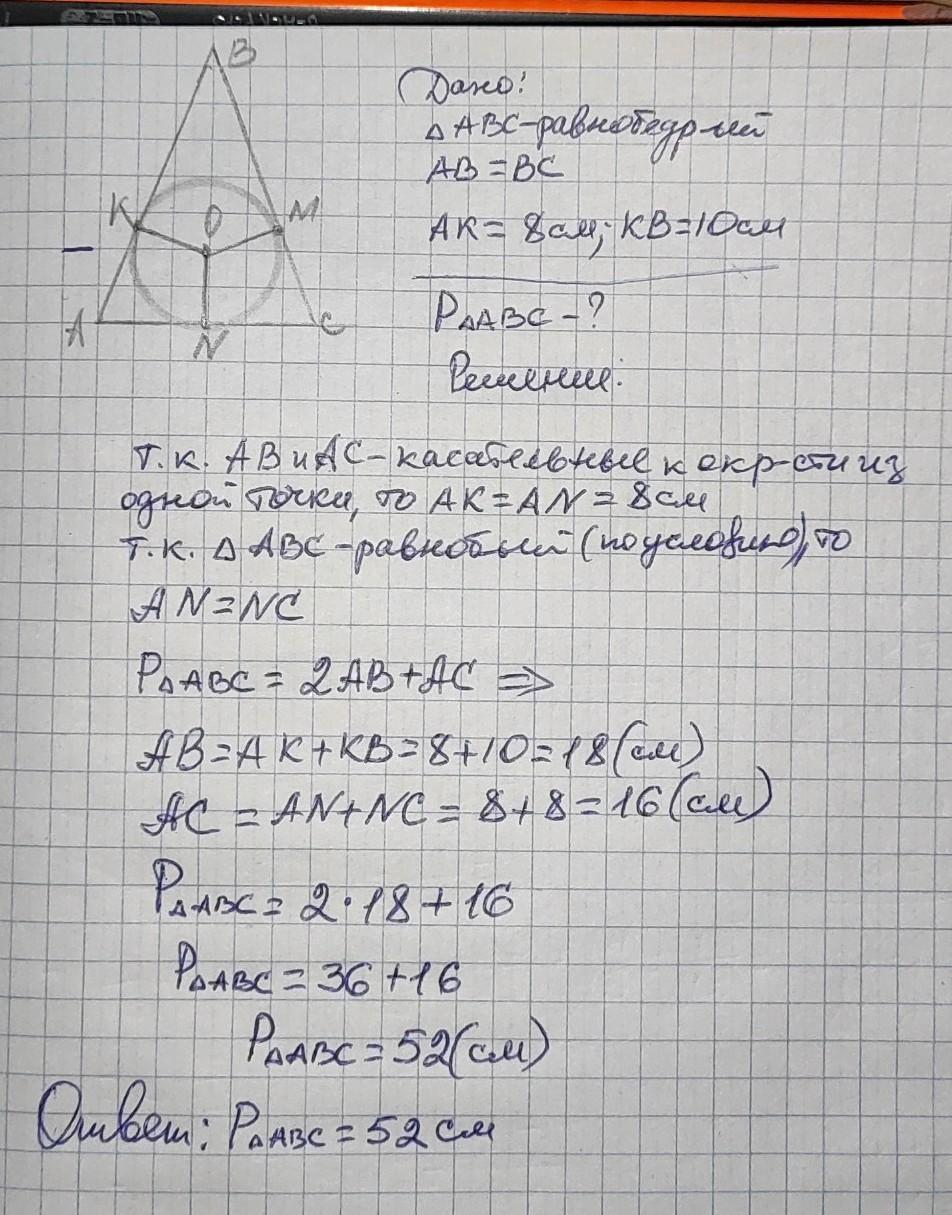 B
K
O
M
A
N
C
Дано:
△ABC-равнобедр-ый
AB=BC
AK= 8см; KB=10см
P△ABC-?
Решение:
Т.к. AB и AC-касательные к окр-сти из
одной точки, то AK=AN=8см
т.к. △ABC-равнобый (по условию), то
AN=NC
P△ABC = 2AB+AC ⇒
AB=AK+KB=8+10=18(см)
AC = AN+NC = 8+8=16(см)
P△ABC = 2·18+16
P△ABC = 36+16
P△ABC = 52(см)
Ответ: P△ABC = 52 см